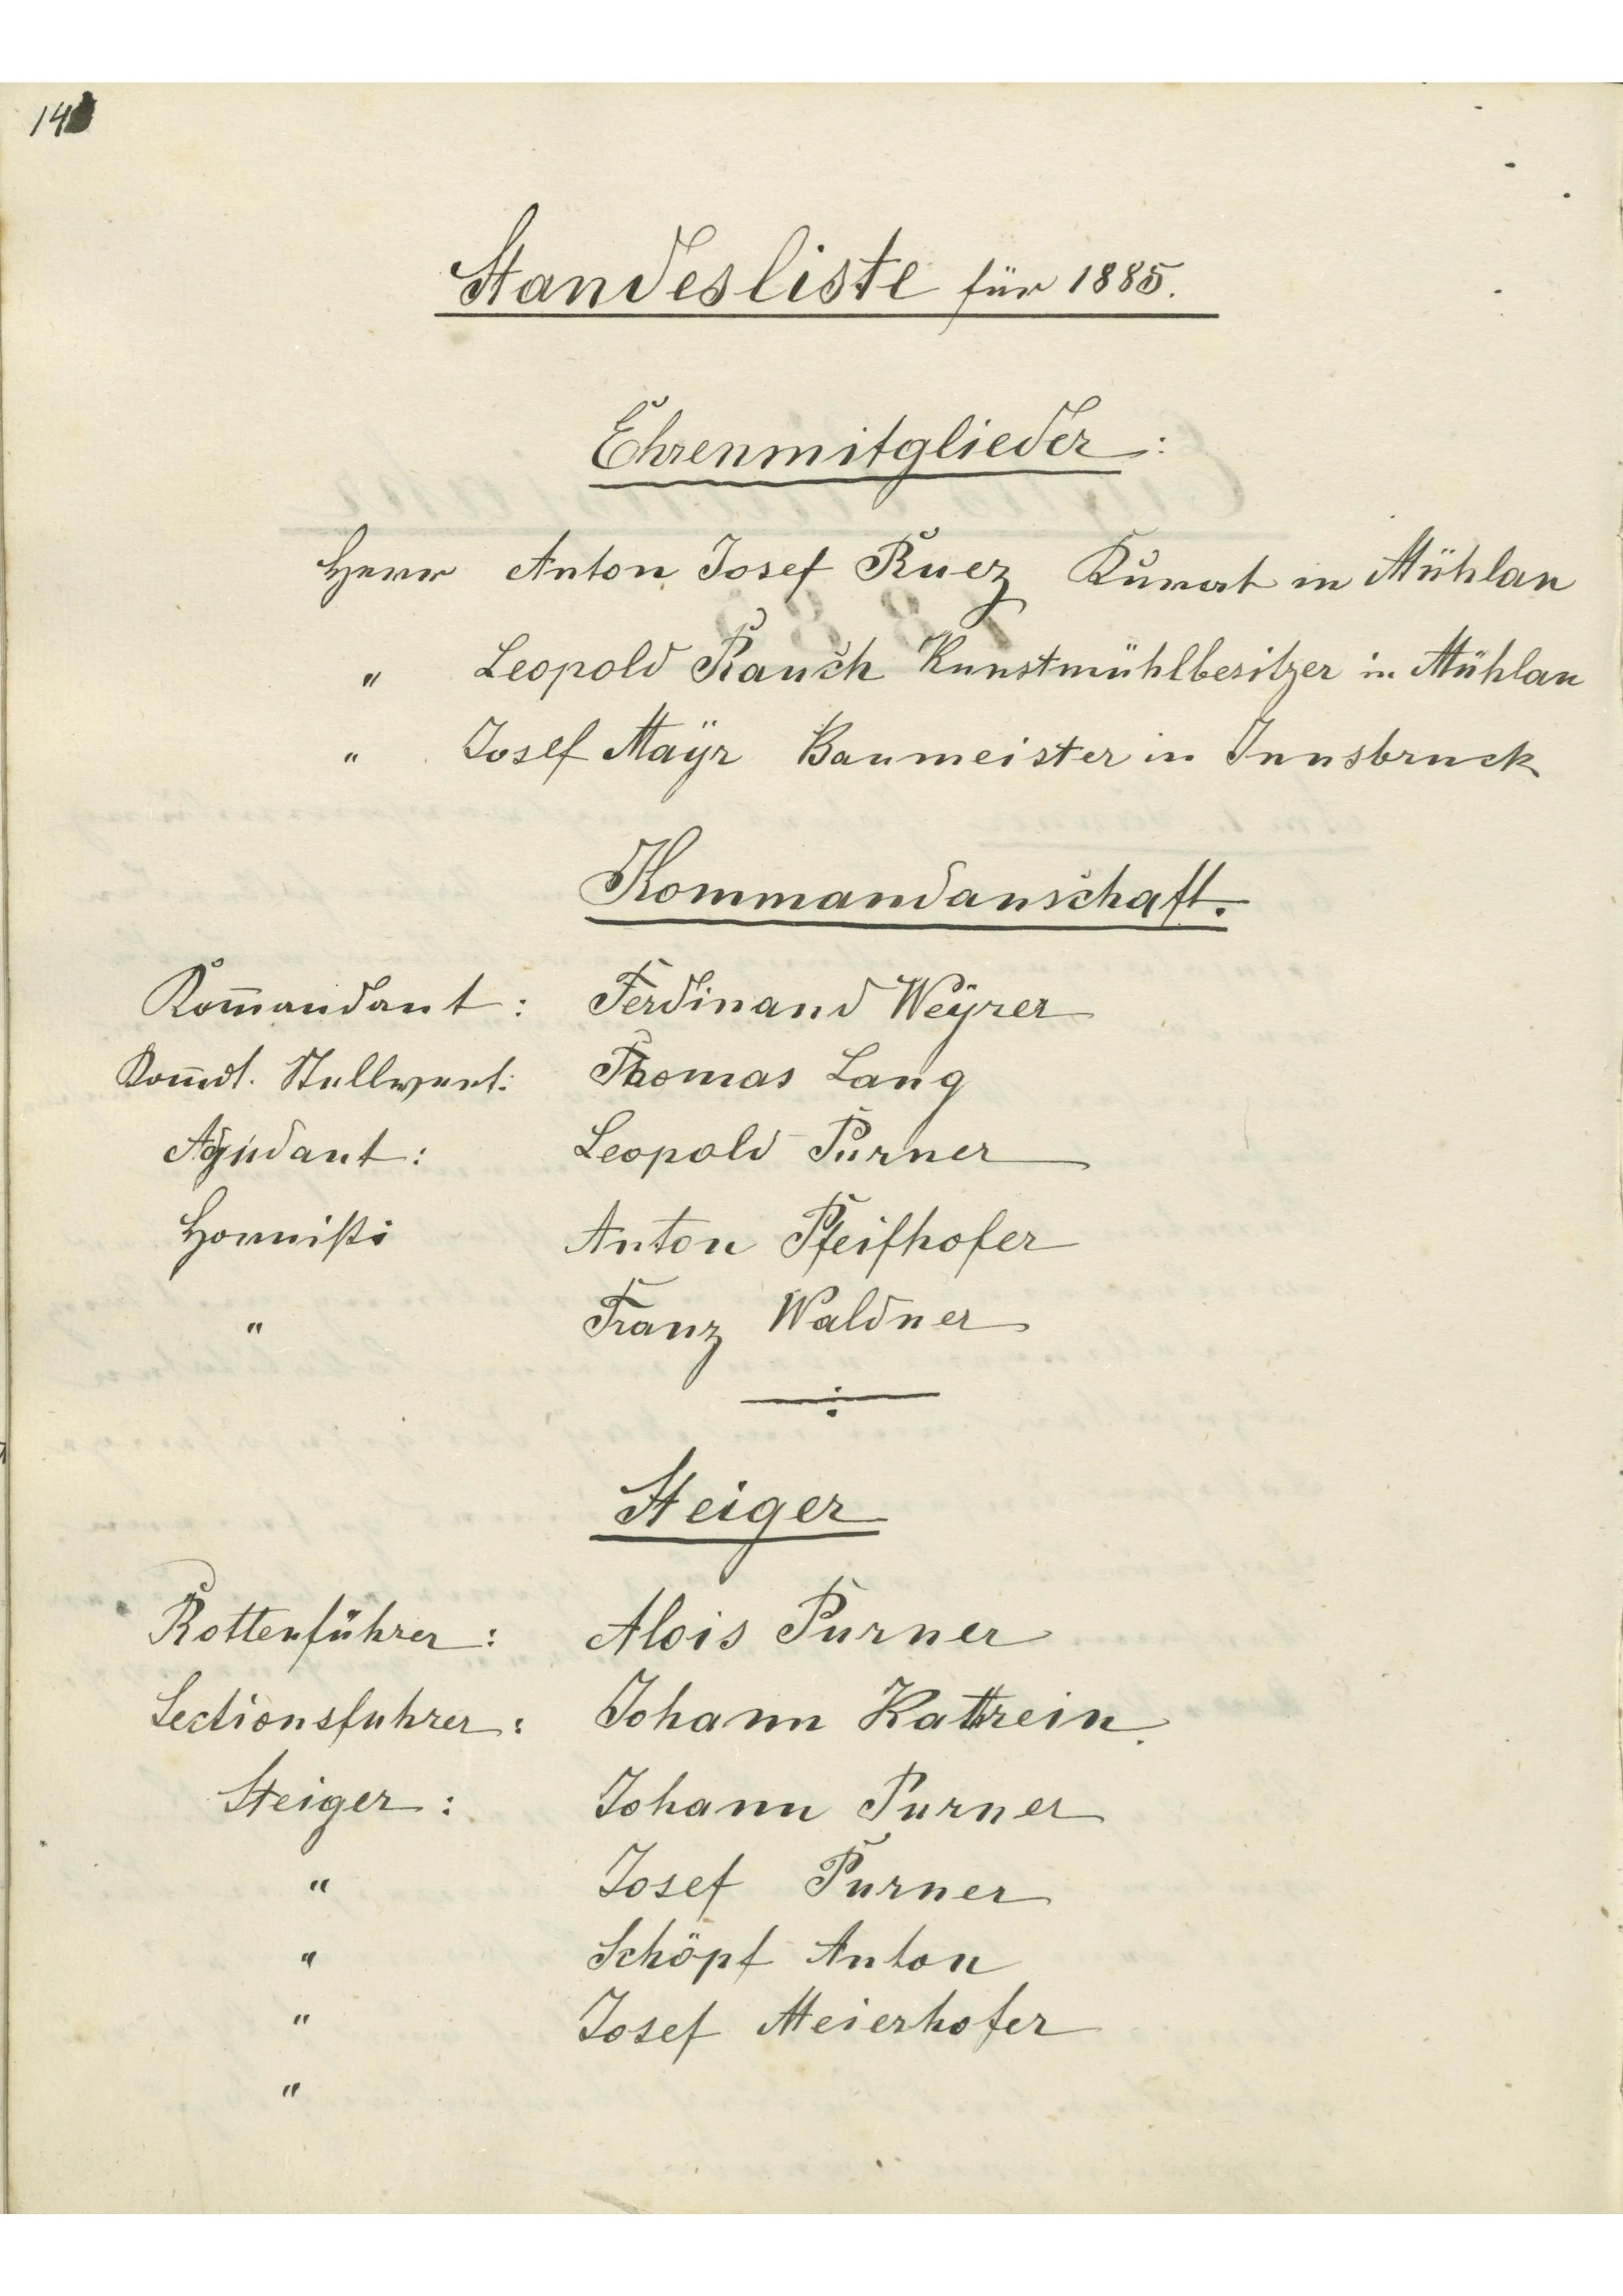 14
Standesliste für 1885.
Ehrenmitglieder:
Herr Anton Josef Ruez Kurat in Mühlau
" Leopold Rauch Kunstmühlbesitzer in Mühlau
" Josef Maÿr Baumeister in Innsbruck
Kommandanschaft.
Kom̅andant: Ferdinand Weÿrer
Kom̅dt. Stellvert: Thomas Lang
Adjudant: Leopold Purner
Hornist: Anton Pfeifhofer
" Franz Waldner
Steiger
Rottenführer: Alois Purner
Sectionsfuhrer: Johann Kathrein.
Steiger: Johann Purner
" Josef Purner
" Schöpf Anton
" Josef Meierhofer
"